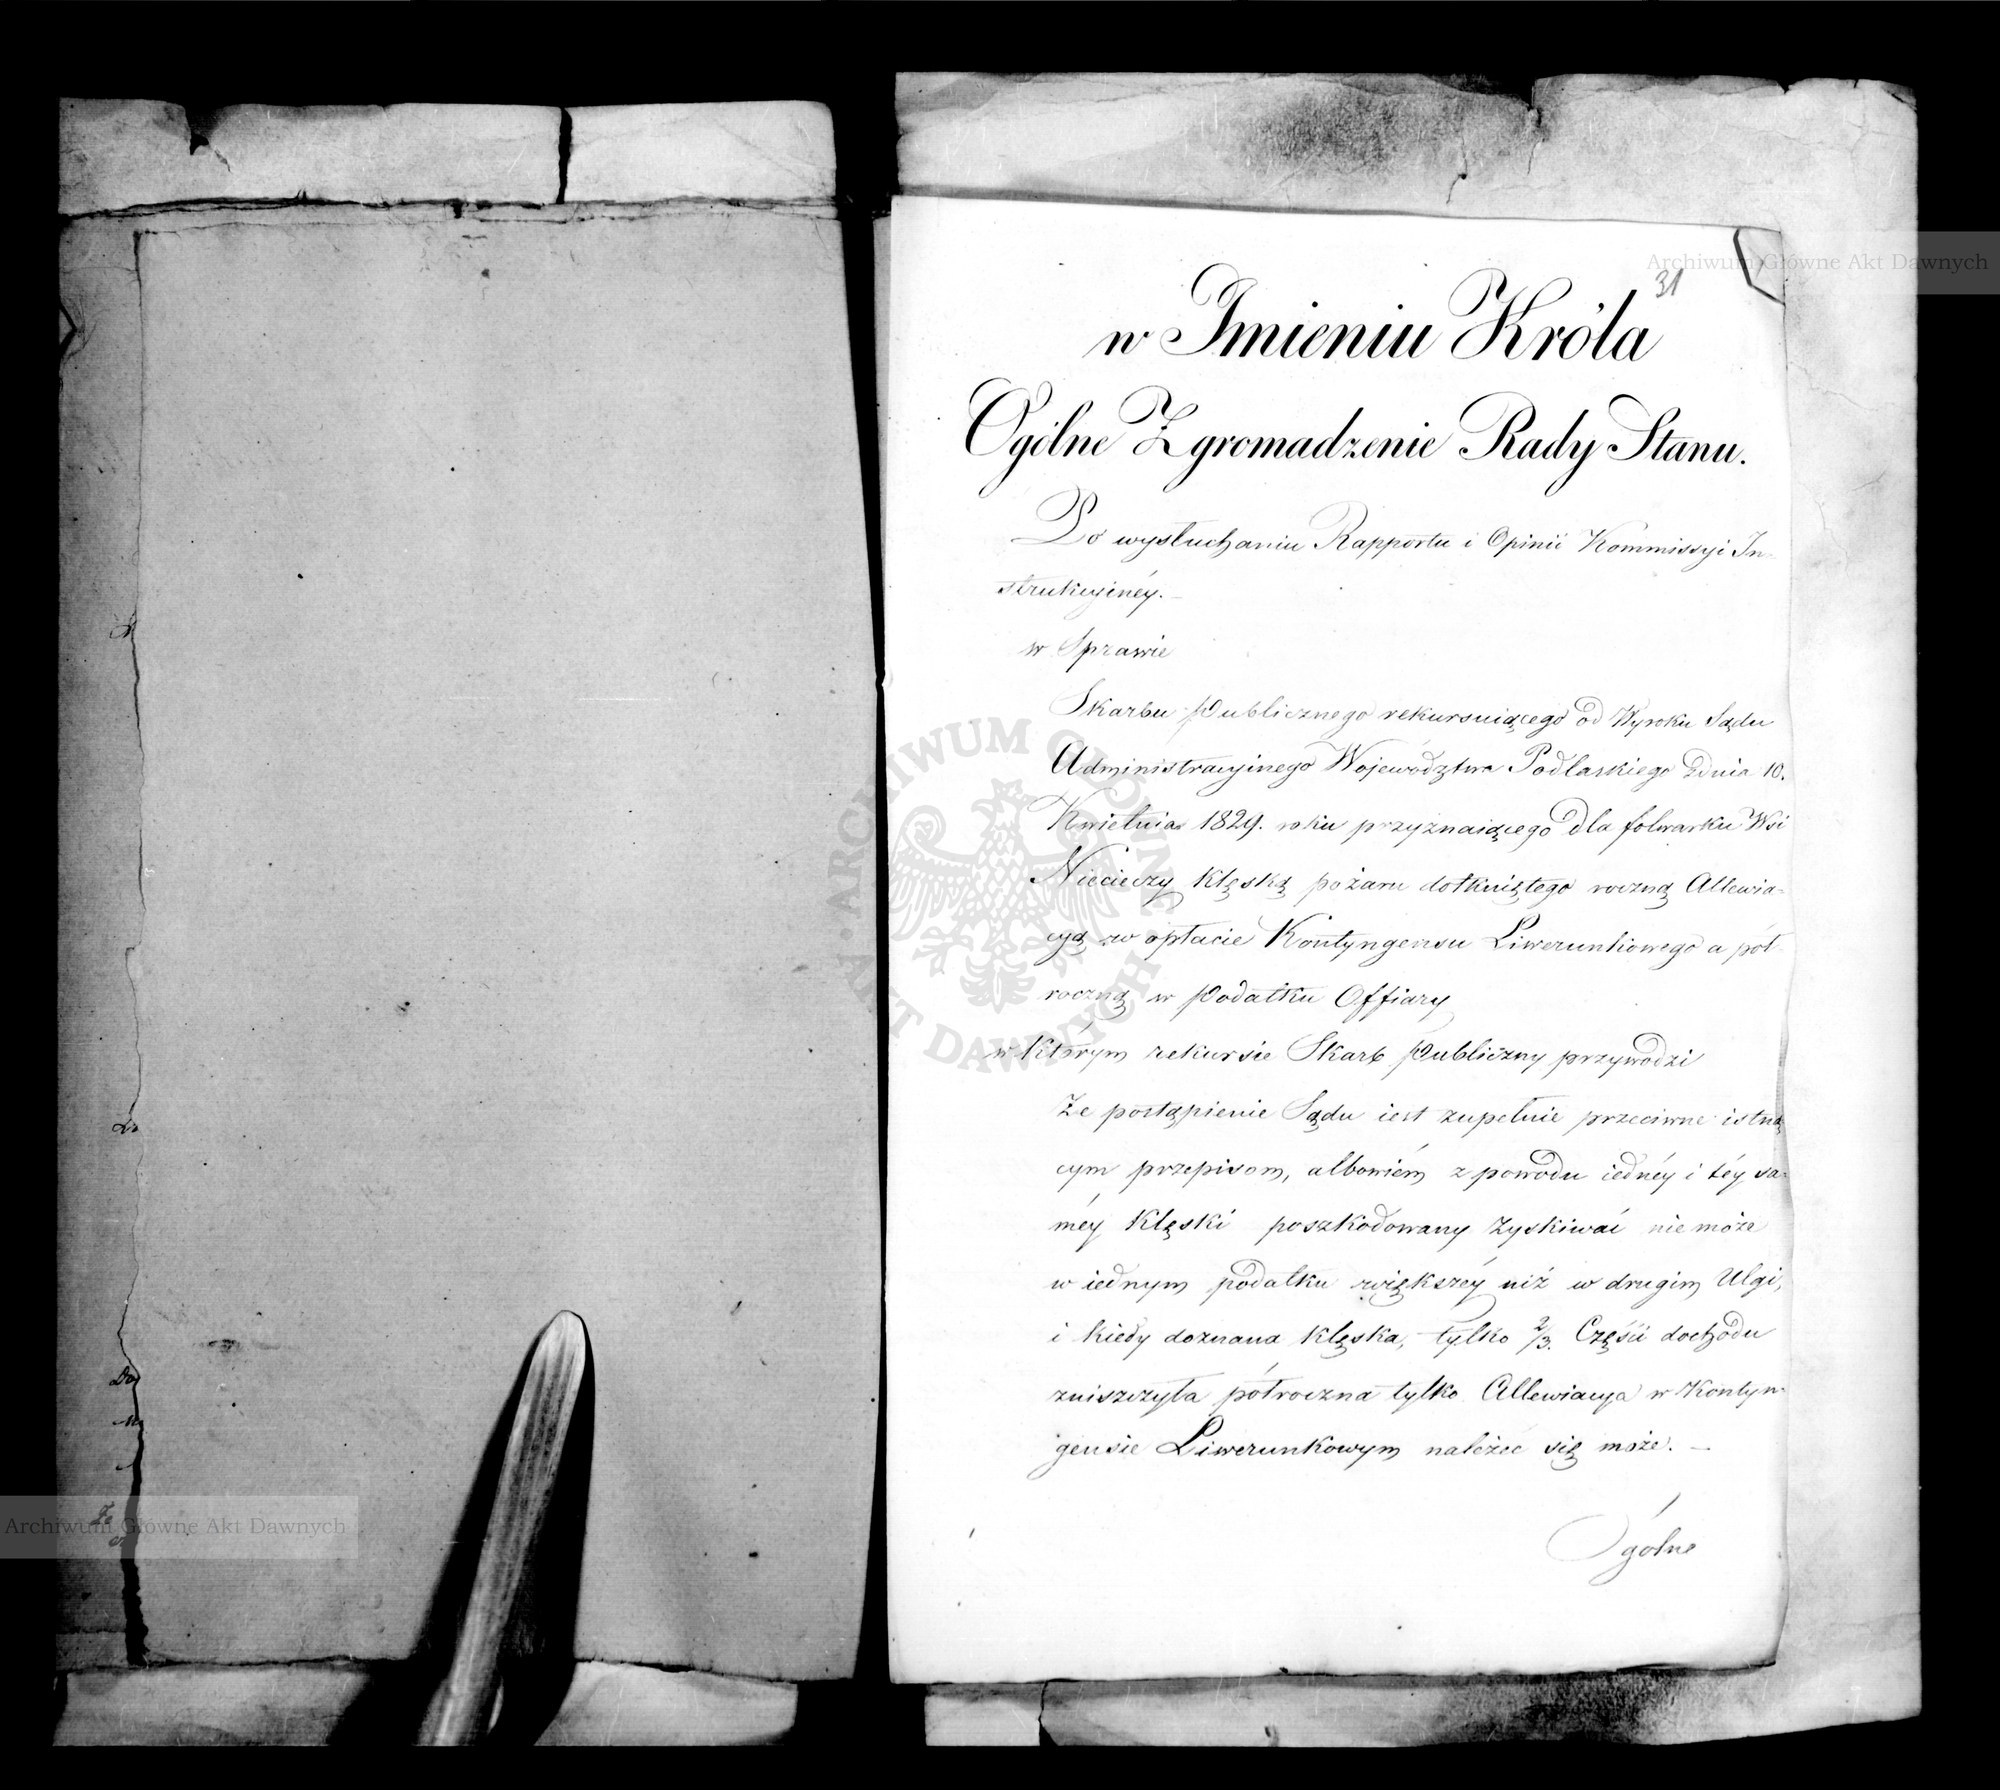 31
w Imieniu Króla
Ogólne Zgromadzenie Rady Stanu.
Po wysłuchaniu Rapportu i Opinii Kommissyi In-
strukcyinéy. –
w Sprawie
Skarbu Publicznego rekursuiącego od Wyroku Sądu
Administracyinego Województwa Podlaskiego Zdnia 10.
Kwietnia 1829. roku przyznaiącego dla folwarku Wsi
Niecieczy klęską pożaru dotkniętego roczną Allewia-
cyą w opłacie Kontyngensu Liwerunkowego a pół-
roczną w Podatku Offiary
w którym rekursie Skarb Publiczny przywodzi
Że postąpienie Sądu iest zupełnie przeciwne istną
cym przepisom, albowiém z powodu iednéy i téy sa-
méy klęski poszkodowany zyskiwać nie może
w iednym podatku większéy niż w drugim Ulgi,
i kiedy doznana klęska, tylko 2/3. Części dochodu
zniszczyła półroczna tylko Allewiacya w Kontyn-
gensie Liwerunkowym należeć się może. –
Ogólne
Do
Że
Archiwum Główne Akt Dawnych
Archiwum Główne Akt Dawnych
ARCHIWUM GŁÓWNE AKT DAWNYCH